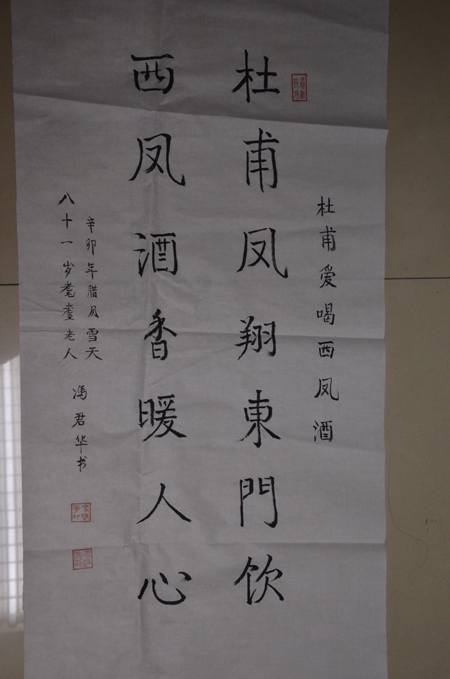 杜甫爱喝西凤酒
杜甫凤翔東門饮
西凤酒香暖人心
辛卯年腊月雪天
八十一岁耄耋老人
冯君华书